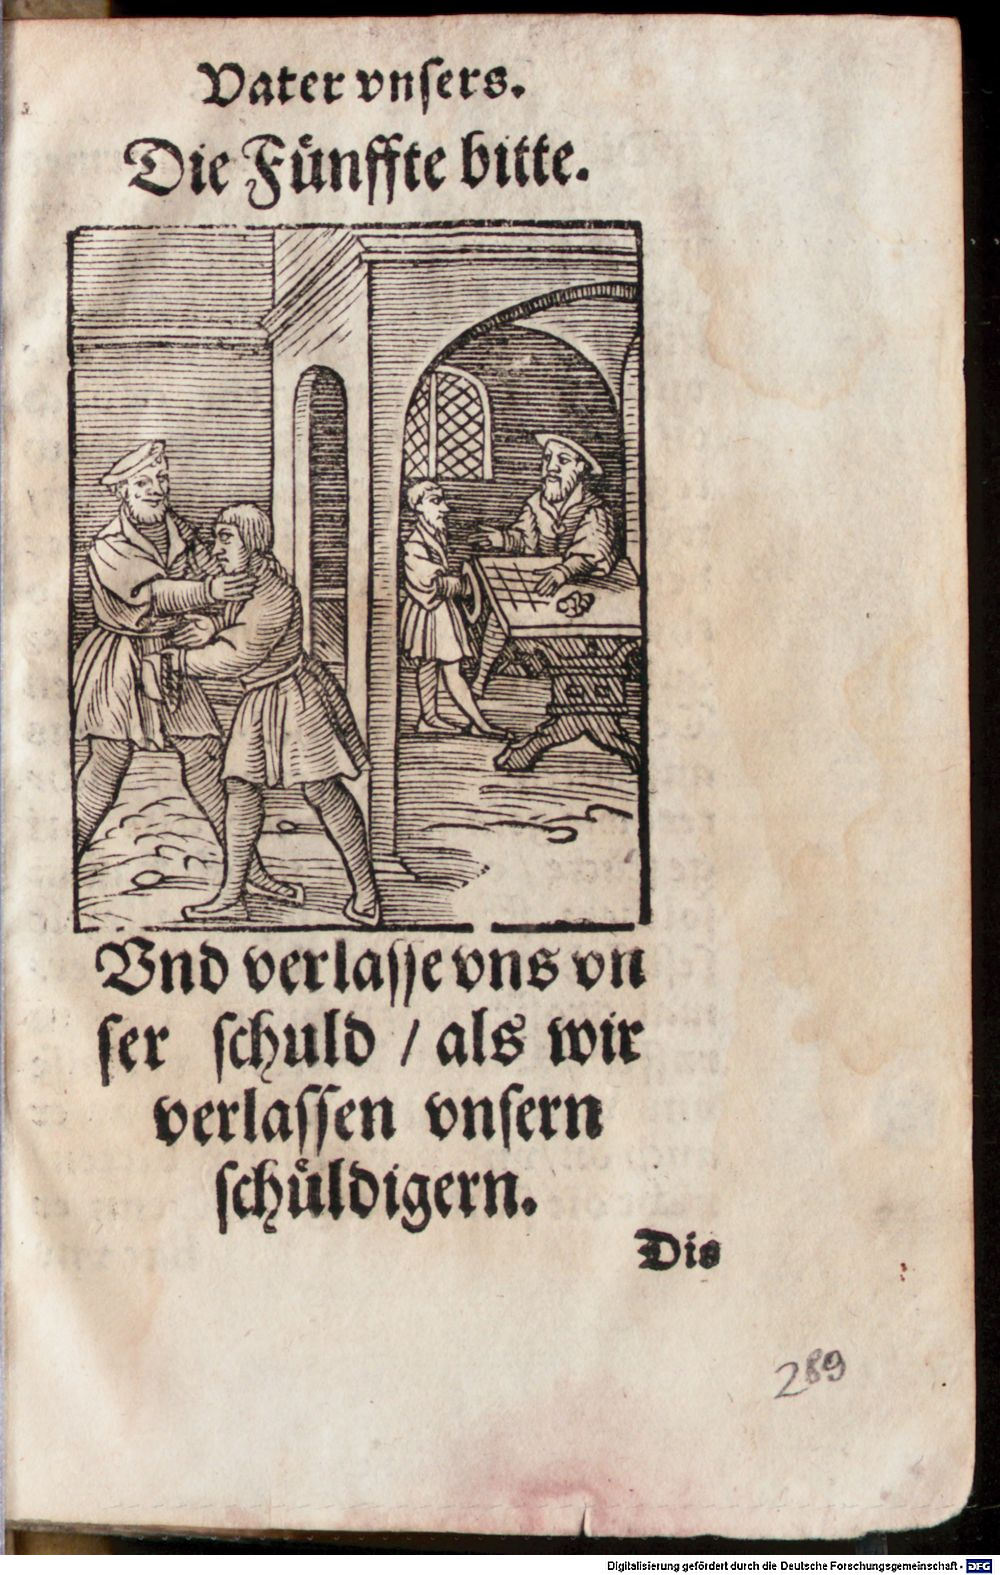 Vater vnſers.
Die Fuͤnffte bitte.
Vnd verlaſſe vns vn
ſer ſchuld / als wir
verlaſſen vnſern
ſchuͤldigern.
Dis
289
Digitalisierung gefördert durch die Deutsche Forschungsgemeinschaft - DFG